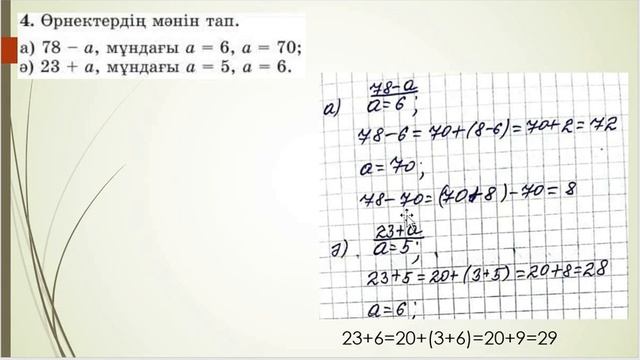 4. Өрнектердің мәнін тап.
а) 78 − a, мұндағы a = 6, a = 70;
ә) 23 + a, мұндағы a = 5, a = 6.
78-a
а) a=6;
78-6=70+(8-6)=70+2=72
a=70;
78-70=(70+8)-70=8
23+a
ә) a=5;
23+5=20+(3+5)=20+8=28
a=6;
23+6=20+(3+6)=20+9=29